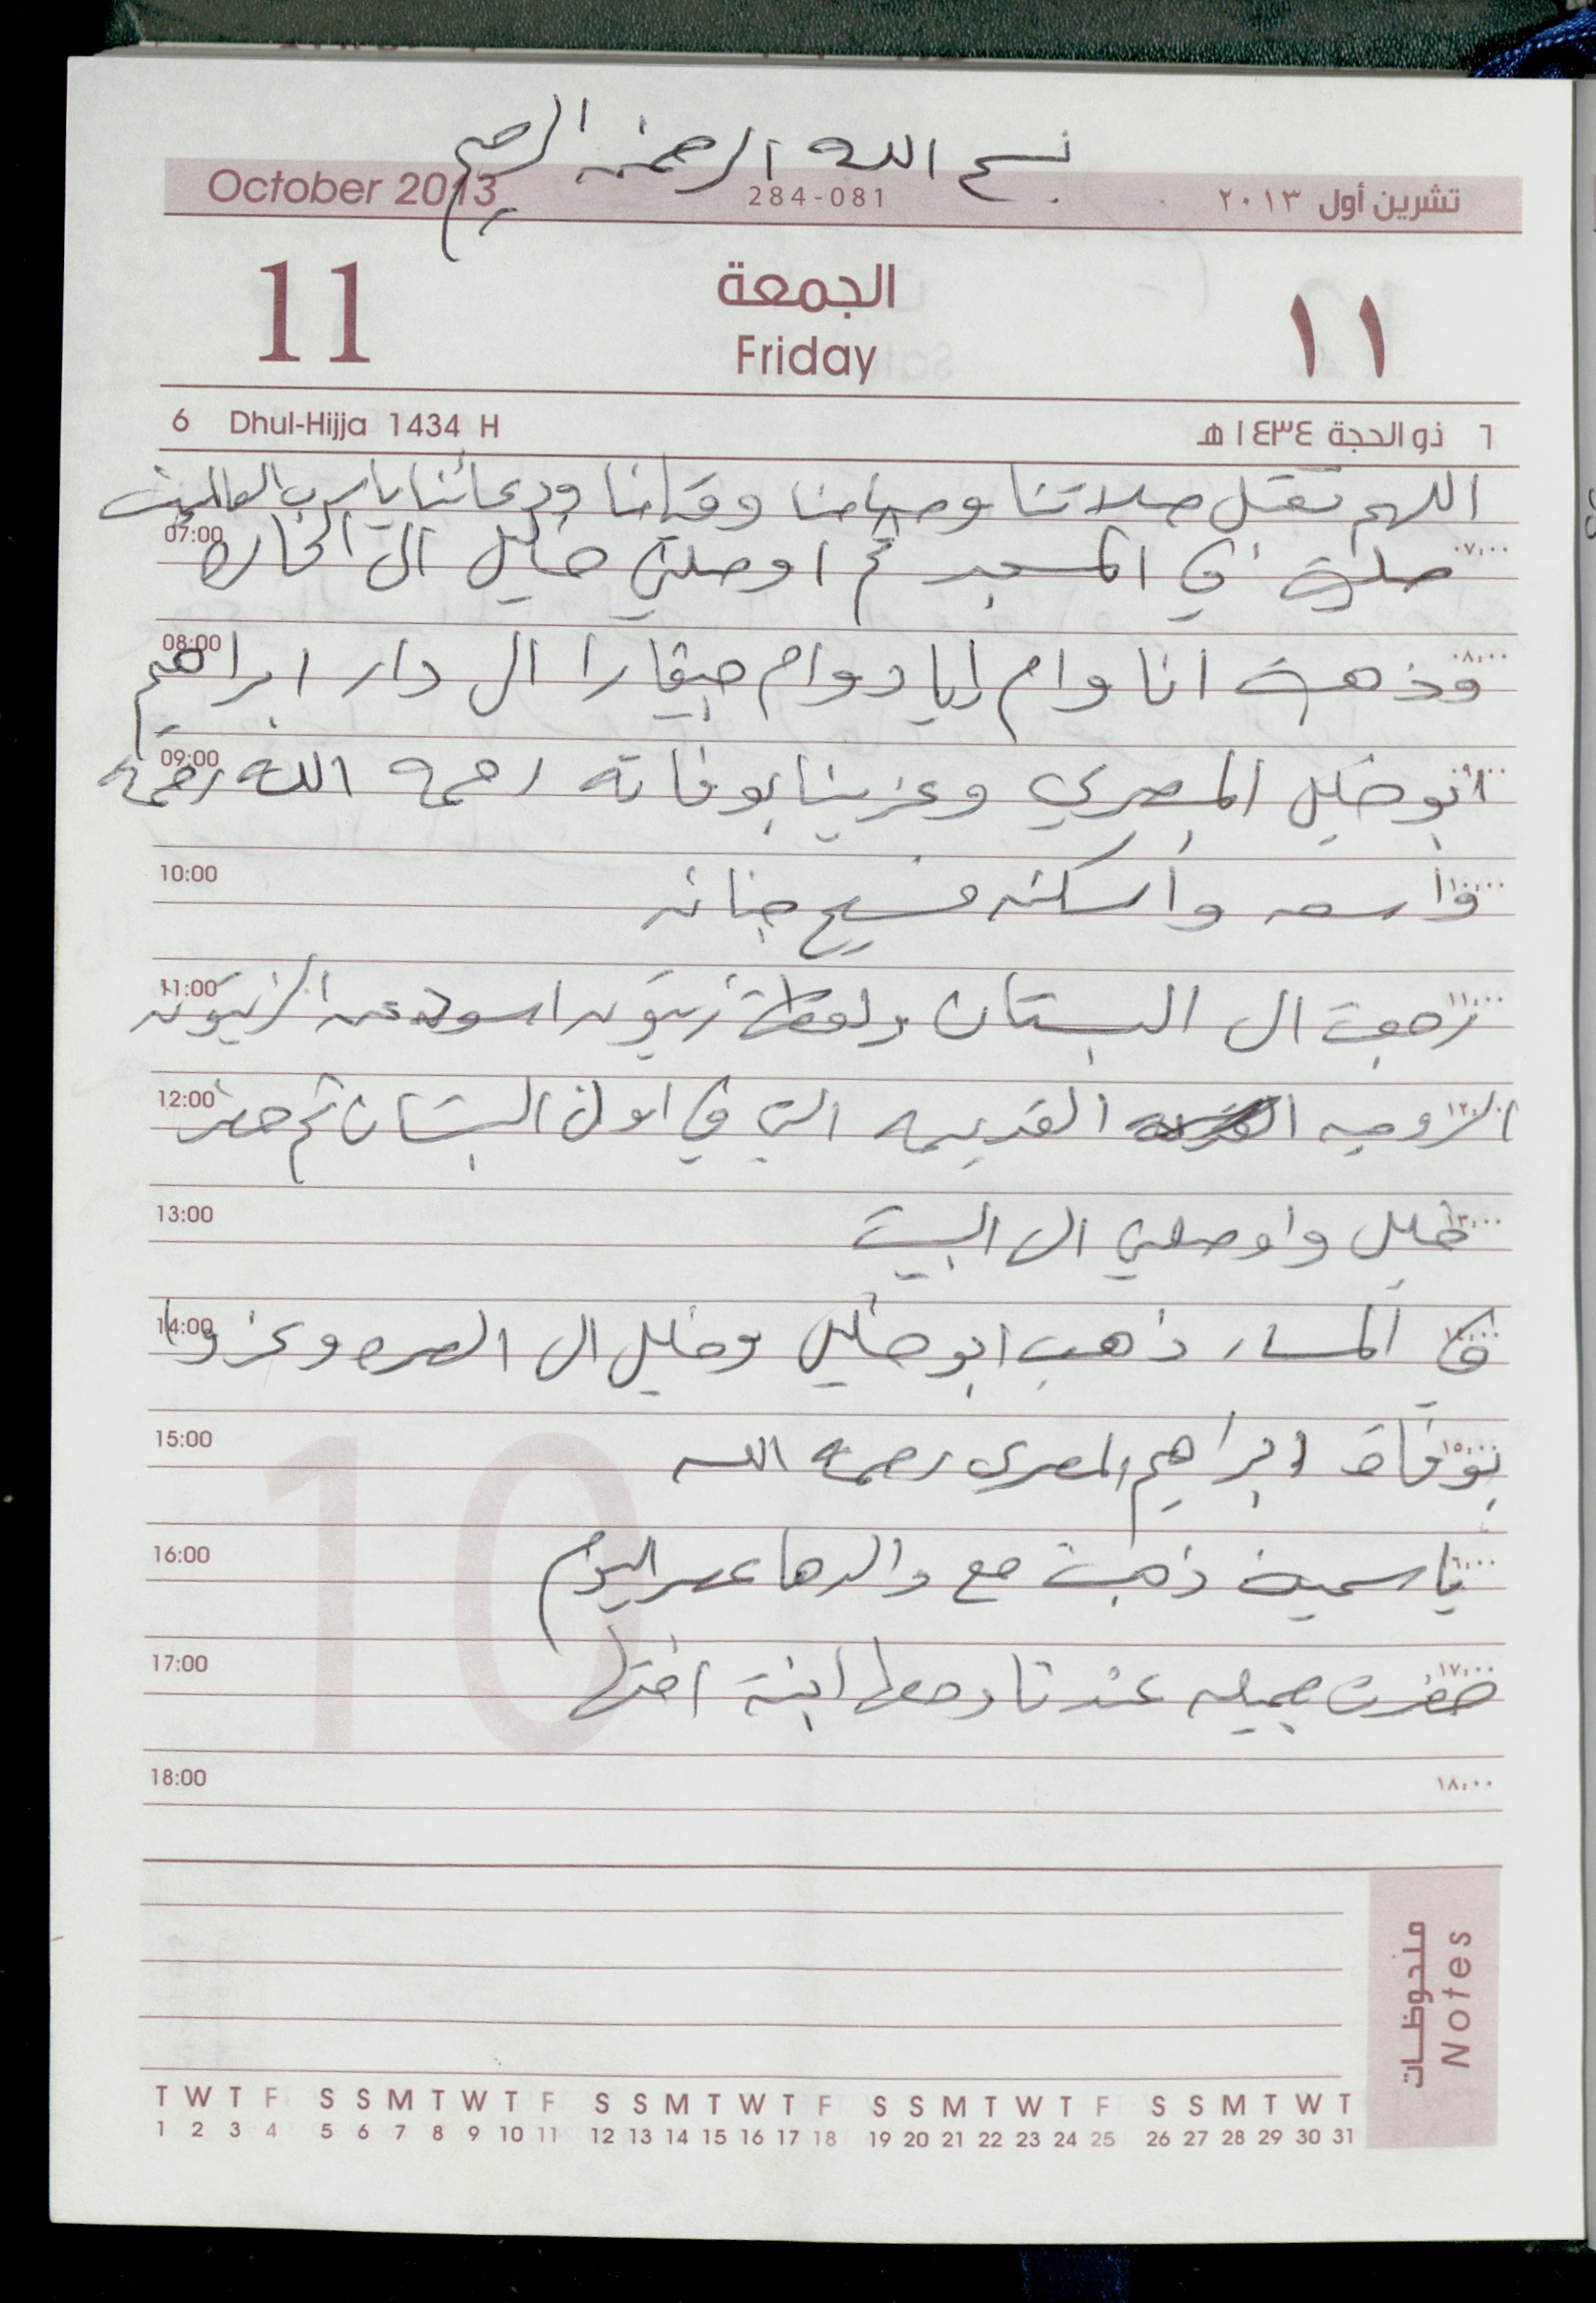 بسم الله الرحمن الرحيم
October 2013 284-081 تشرين أول ٢٠١٣
11 الجمعة ١١
Friday
6 Dhul-Hijja 1434 H ٦ ذو الحجة ١٤٣٤ هـ
اللهم تقبل صلاتنا وصيامنا وقيامنا ودعائنا يا رب العالمين
07:00 صليت في المسجد ثم اوصلني خليل الى الحاره ٠٧:٠٠
08:00 وذهبت انا وام اياد وام جيفارا الى دار ابراهيم ٠٨:٠٠
09:00 ابو خليل المصري وعزينا بوفاته رحمه الله رحمة ٠٩:٠٠
10:00 واسعه واسكنه فسيح جنانه ١٠:٠٠
11:00 رجعت الى البستان ولقطت زيتون اسود عن الزيتونه ١١:٠٠
12:00 الروميه القديمه التي في اول البستان ثم حضر ١٢:٠٠
13:00 خليل واوصلني الى البيت ١٣:٠٠
14:00 في المساء ذهب ابو خليل وخليل الى العزه وعزوا ١٤:٠٠
15:00 بوفاة ابراهيم المصري رحمه الله ١٥:٠٠
16:00 ياسمين ذهبت مع والدها عصر اليوم ١٦:٠٠
17:00 حضرت جميله عندنا ومعها ابنة اختها ١٧:٠٠
18:00 ١٨:٠٠
ملحوظات
Notes
T W T F S S M T W T F S S M T W T F S S M T W T F S S M T W T
1 2 3 4 5 6 7 8 9 10 11 12 13 14 15 16 17 18 19 20 21 22 23 24 25 26 27 28 29 30 31